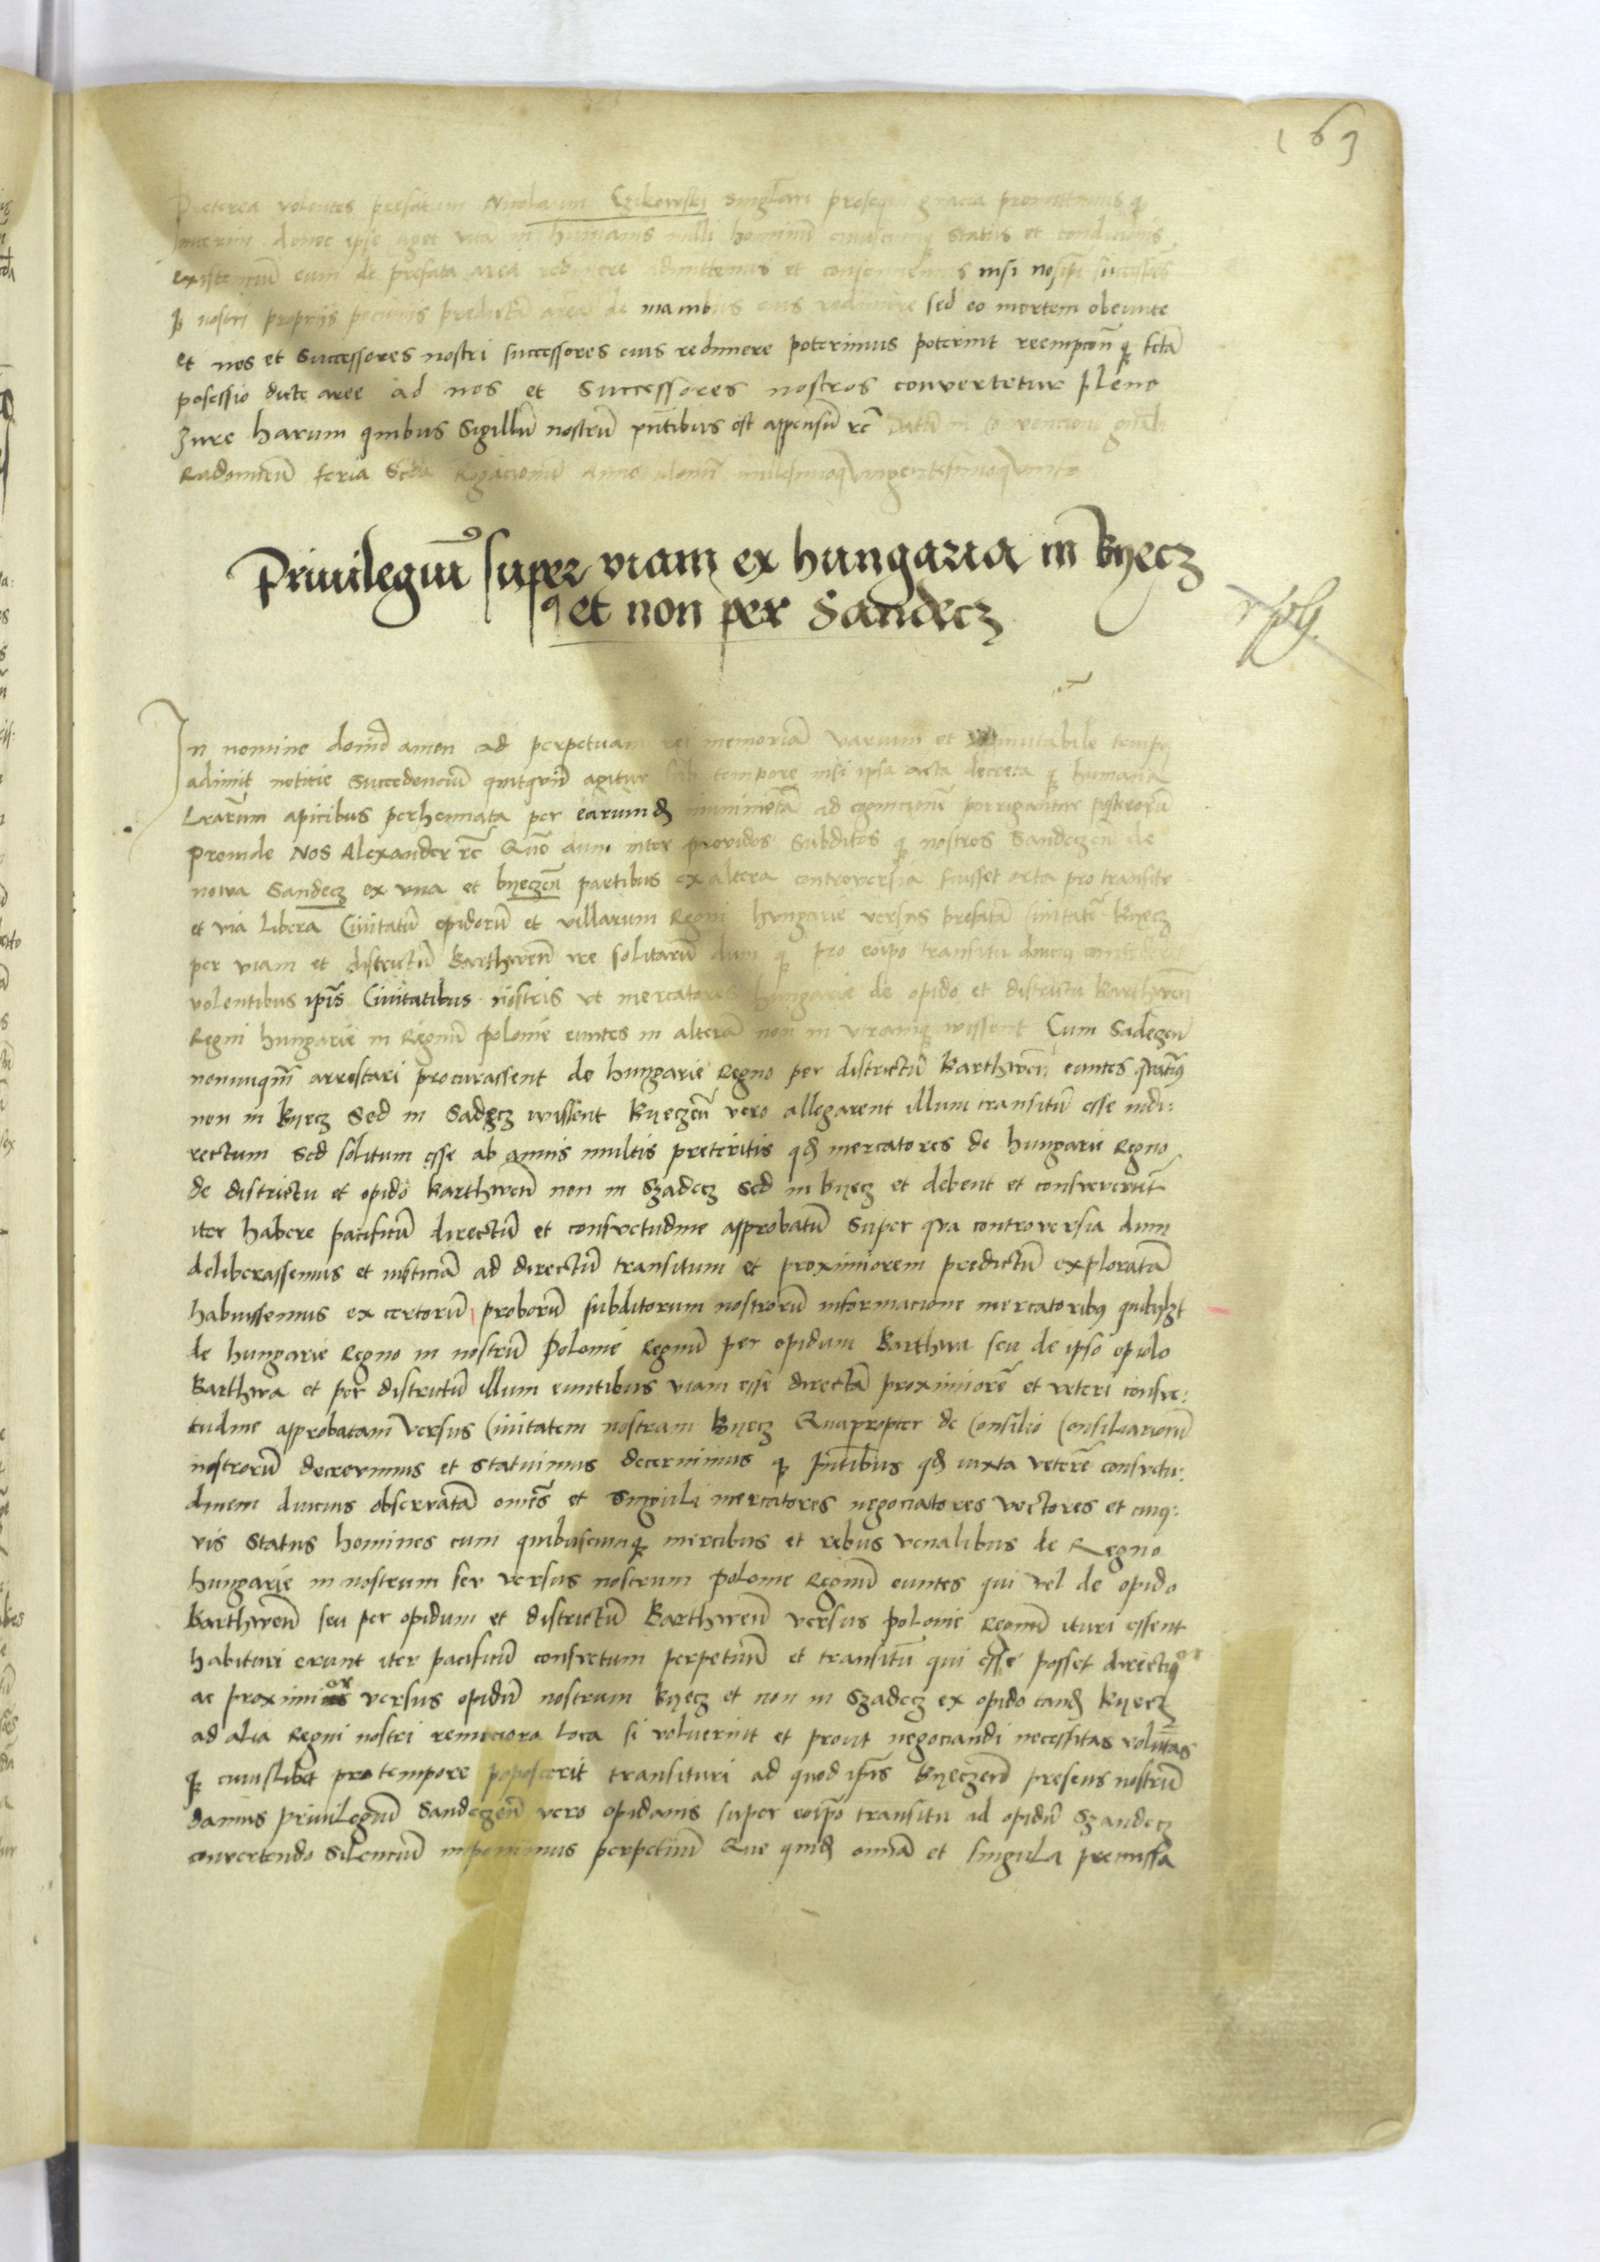 163
Preterea volentes prefatum Nicolaum Czikowski singlari prosequi gracia promittimus q̃
interim donec ipse aget vitã in humanis nulli hominũ cuiuscunq̃ status et condicionis
existenciũ eum de prefata area redimere admittemus et consenciemus nisi nosipi successores
q̃ nostri proprijs pecunijs predictã areã de manibus eius redimere sed eo mortem obeunte
et nos et Successores nostri successores eius redimere poterimus poterint reempcõn q̃ fctã
posessio dicte aree ad nos et Successores nostros convertetur pleno
Jure harum quibus Sigillũ nostrũ pñtibus est appensũ rc̃ Datũ in Convencioni gñali
Radomieñ feria Scda Rogacionũ Anno domi millesimoquingentesimoquinto
Priuilegiũ super viam ex hungaria in Byecz
et non per Sandecz
In nomine domi amen ad perpetuam rei memoriã varium et mutabile tempus
adimit noticie Succedenciũ quitquid agitur sub tempore nisi ipsa acta decreta q̃ humana
Lrarum apicibus perhennata per earund munimẽta ad cognicionẽ porrigantur posterorũ
proinde Nos Alexander rc̃ Quõ dum inter providos Subditos q̃ nostros Sandeczeñ de
nowa Sandecz ex vna et byeczeñ partibus ex altera controversia fuisset orta pro transitu
et via libera Ciuitatũ opidorũ et villarum Regni hungarie versus prefatã Ciuitatẽ Byecz
per viam et districtũ Barthweñ ire solitarũ dum q̃ pro eoipo transitu diucius contendere
volentibus ipis Ciuitatibus nostris vt mercatores hungarie de opido et districtu Barthweñ
Regni hungarie in Regnũ polonie euntes in alterã non in utramq̃ wissent Cum Sadeczeñ
nonnuq̃m arrestari procurassent de hungarie Regno per districtũ Barthweñ euntes
non in Byecz Sed in Sadecz wissent Byeczeñ vero allegarent illum transitũ esse indi:
rectum sed solitum esse ab annis multis preteritis qd mercatores de hungarie Regno
de districtu et opido Barthweñ non in Szadecz sed in byecz et debent et consveverũt
iter habere pacificũ directũ et consvetudine approbatũ Super qua controversia dum
deliberassemus et iusticiã ad directũ transitum et proximiorem predictũ exploratã
habuissemus ex certorũ proborũ subditorum nostrorũ informacione mercatoribus quibuslibet
de hungarie Regno in nostrũ Polonie Regnũ per opidum Barthwa seu de ipso opido
Barthwa et per districtũ illum euntibus viam esse directã proximiorẽ et veteri consve:
tudine approbatam versus Ciuitatem nostram Byecz Quapropter de Consilio Consiliariorũ
nostrorũ decrevimus et statuimus decernimus q̃ pñtibus qd iuxta veterẽ consvetu:
dinem diucius observatã omẽs et singuli mercatores negociatores vectores et cuiq:
vis status homines cum quibuscunq̃ mercibus et rebus venalibus de Regno
hungarie in nostrum seu versus nostrum polonie Regnũ euntes qui vel de opido
Barthweñ seu per opidum et districtũ Barthweñ versus polonie Regnũ ituri essent
habituri erunt iter pacificũ consvetum perpetuũ et transitũ qui esse posset directior
ac proximior versus opidũ nostrum Byecz et non in Szadecz ex opido tand Byecz
ad alia Regni nostri remociora loca si voluerint et prout negociandi necessitas voluntas
q̃ cuiuslibet pro tempore poposcerit transituri ad quod ipis Byeczeñ presens nostrũ
damus priuilegiũ Sandeczeñ vero opidanis super eoipo transitu ad opidũ Szandecz
convertendo silenciũ imponimus perpetuũ Que quid omiã et singula premissa